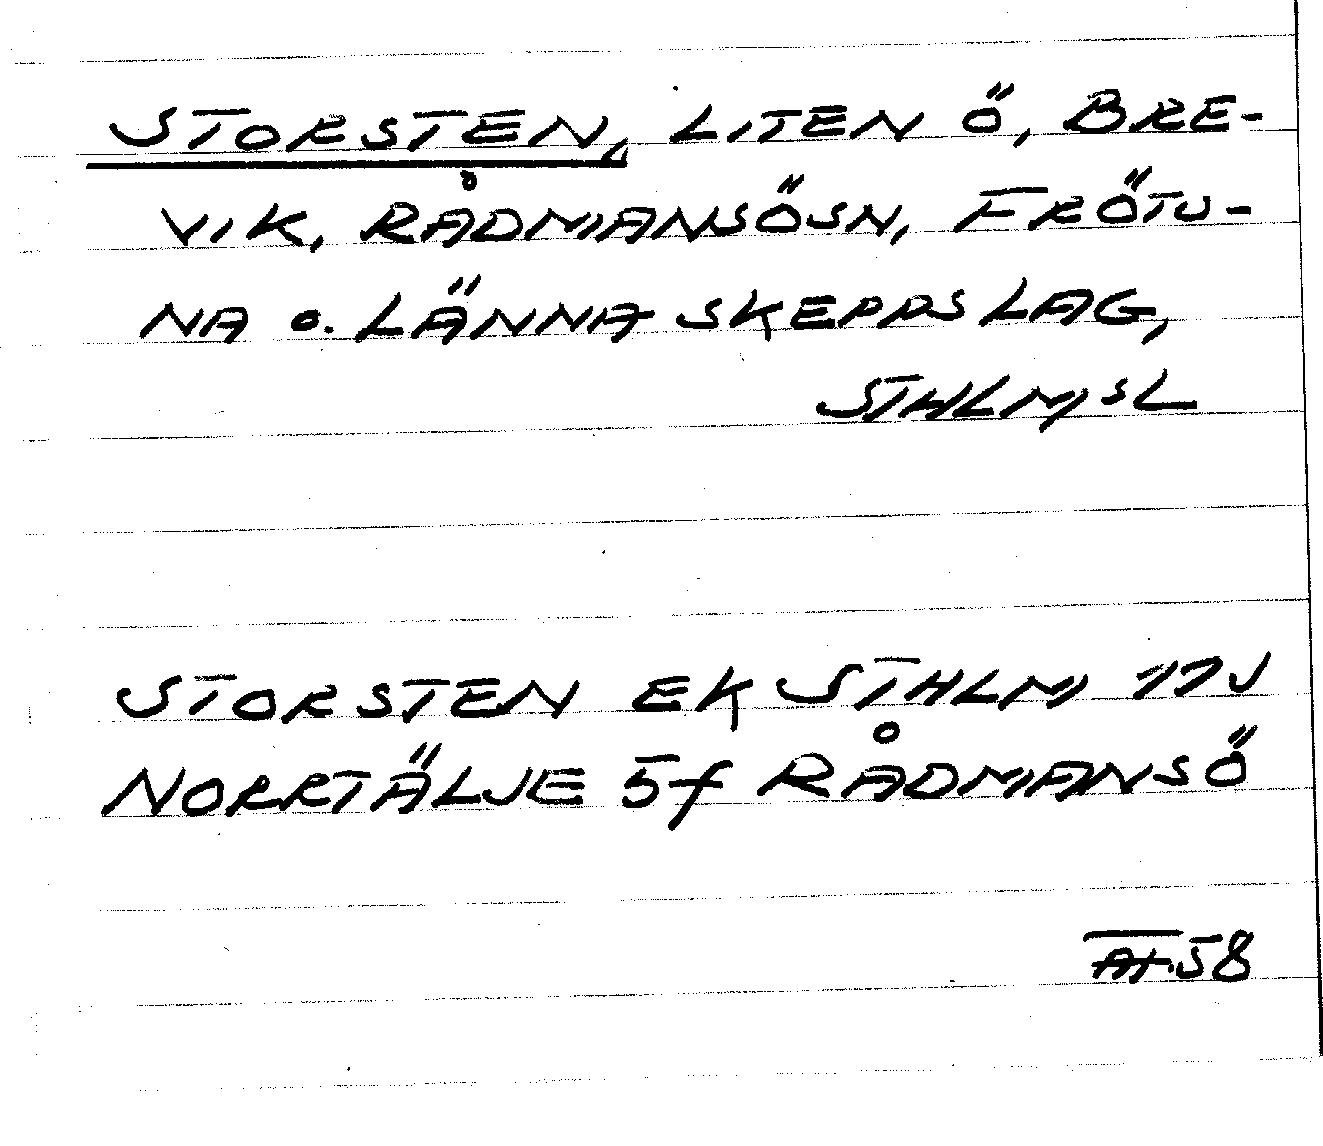 STORSTEN, LITEN Ö, BRE-
VIK, RÅDMANSÖSN, FRÖTU-
NA O. LÄNNA SKEPPSLAG,
STHLMSL
STORSTEN EK STHLM 11J
NORRTÄLJE 5f RÅDMANSÖ
58